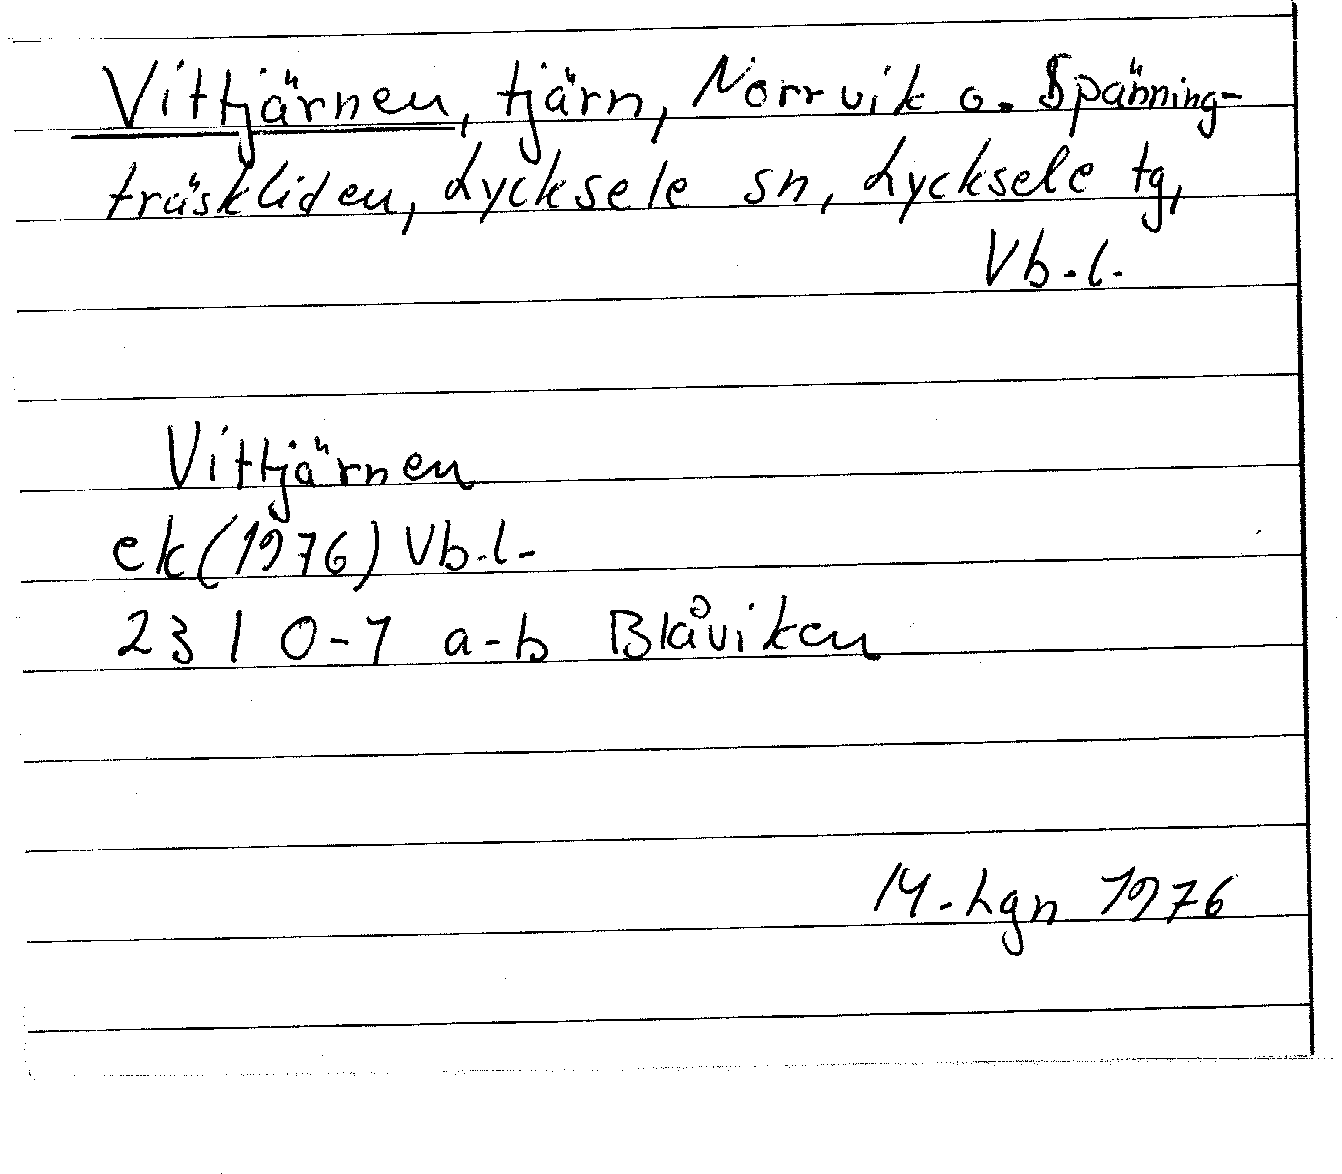 Vittjärnen, tjärn, Norrvik o. Spänning-
träskliden, Lycksele sn, Lycksele tg,
Vb.l.
Vittjärnen
ek(1976) Vb.l.
23 I 0-1 a-b Blåviken
M. Lgn 1976